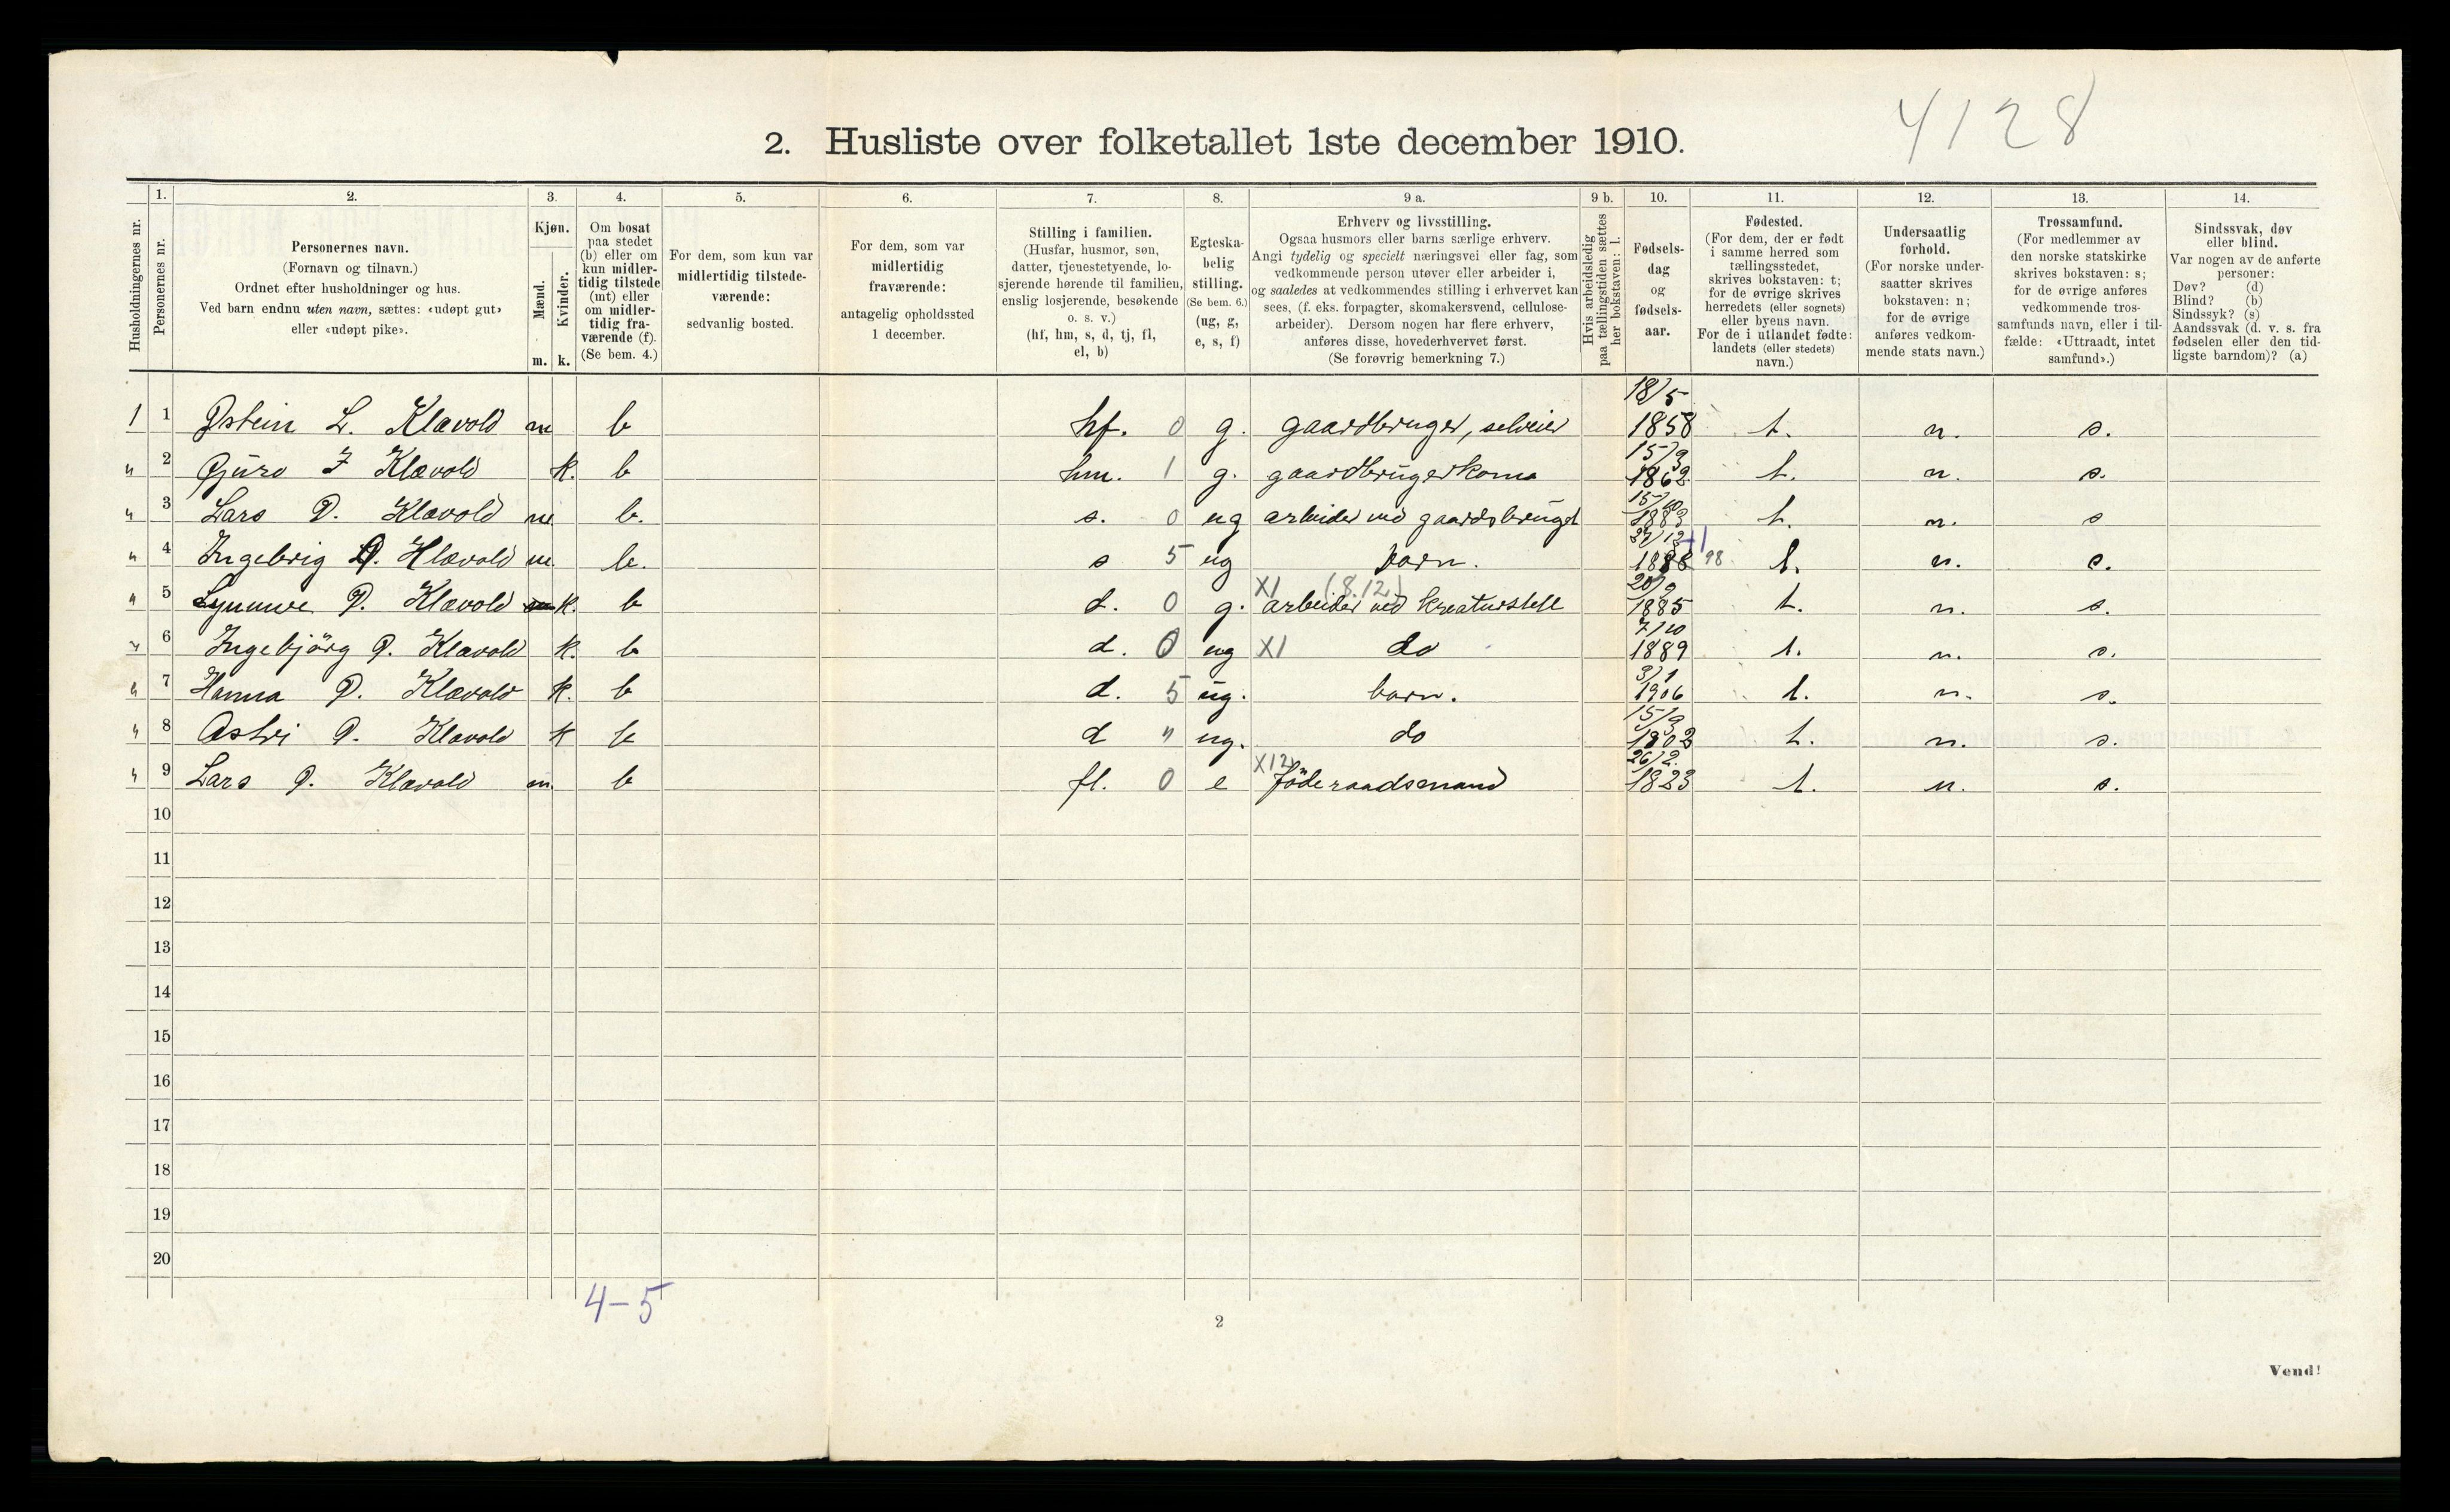 4128
2. Husliste over folketallet 1ste december 1910.
Husholdningernes nr.
1.
Personernes nr.
2.
Personernes navn.
(Fornavn og tilnavn.)
Ordnet efter husholdninger og hus.
Ved barn endnu uten navn, sættes: «udøpt gut»
eller «udøpt pike».
3.
Kjøn.
Mænd.
Kvinder.
m. k.
4.
Om bosat
paa stedet
(b) eller om
kun midler-
tidig tilstede
(mt) eller
om midler-
tidig fra-
værende (f).
(Se bem. 4.)
5.
For dem, som kun var
midlertidig tilstede-
værende:
sedvanlig bosted.
6.
For dem, som var
midlertidig
fraværende:
antagelig opholdssted
1 december.
7.
Stilling i familien.
(Husfar, husmor, søn,
datter, tjenestetyende, lo-
sjerende hørende til familien,
enslig losjerende, besøkende
o. s. v.)
(hf, hm, s, d, tj, fl,
el, b)
8.
Egteska-
belig
stilling.
(Se bem. 6.)
(ug, g,
e, s, f)
9 a.
Erhverv og livsstilling.
Ogsaa husmors eller barns særlige erhverv.
Angi tydelig og specielt næringsvei eller fag, som
vedkommende person utøver eller arbeider i,
og saaledes at vedkommendes stilling i erhvervet kan
sees, (f. eks. forpagter, skomakersvend, cellulose-
arbeider). Dersom nogen har flere erhverv,
anføres disse, hovederhvervet først.
(Se forøvrig bemerkning 7.)
9 b.
Hvis arbeidsledig
paa tællingstiden sættes
her bokstaven: l.
10.
Fødsels-
dag
og
fødsels-
aar.
11.
Fødested.
(For dem, der er født
i samme herred som
tællingsstedet,
skrives bokstaven: t;
for de øvrige skrives
herredets (eller sognets)
eller byens navn.
For de i utlandet fødte:
landets (eller stedets)
navn.)
12.
Undersaatlig
forhold.
(For norske under-
saatter skrives
bokstaven: n;
for de øvrige
anføres vedkom-
mende stats navn.)
13.
Trossamfund.
(For medlemmer av
den norske statskirke
skrives bokstaven: s;
for de øvrige anføres
vedkommende tros-
samfunds navn, eller i til-
fælde: «Uttraadt, intet
samfund».)
14.
Sindssvak, døv
eller blind.
Var nogen av de anførte
personer:
Døv? (d)
Blind? (b)
Sindssyk? (s)
Aandssvak (d. v. s. fra
fødselen eller den tid-
ligste barndom)? (a)
1 1 Østein L. Klavold m b hf. 0 g. gaardbruger, selveier 18/5 1858 t. n. s.
" 2 Gjuro Klavold k. b hm. 1 g. gaardbrugerkona 15/3 1862 t. n. s.
" 3 Lars Ø. Klavold m b. s. 0 ug arbeider ved gaardsbruget 15/10 1883 t. n. s
" 4 Ingebrig Ø. Klavold m. b. s 5 ug barn. 98 t. n. s.
" 5 Synnuve Ø. Klavold k. b d. 0 g. X1 (8.12) arbeider ved kreaturstell 20/9 1885 t. n. s.
" 6 Ingebjörg Ø. Klavold k. b d. 0 ug X1 do 7/10 1889 t. n. s.
" 7 Hanna Ø. Klavold k. b d. 5 ug. barn. 3/1 1906 t. n. s.
" 8 Astri Ø. Klavold k b d " ug. do 15/3 1902 t. n. s.
" 9 Lars Ø. Klavold m. b fl. 0 e X12 föderaadsmand 26/2 1823 t. n. s.
10
11
12
13
14
15
16
17
18
19
20
4-5
2
Vend!